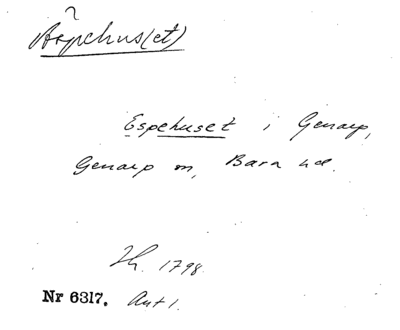 ?
Äspehus(et)
Espehuset i Genarp,
Genarp sn, Bara hd.
Jb. 1798.
Nr 6317. Ant 1.